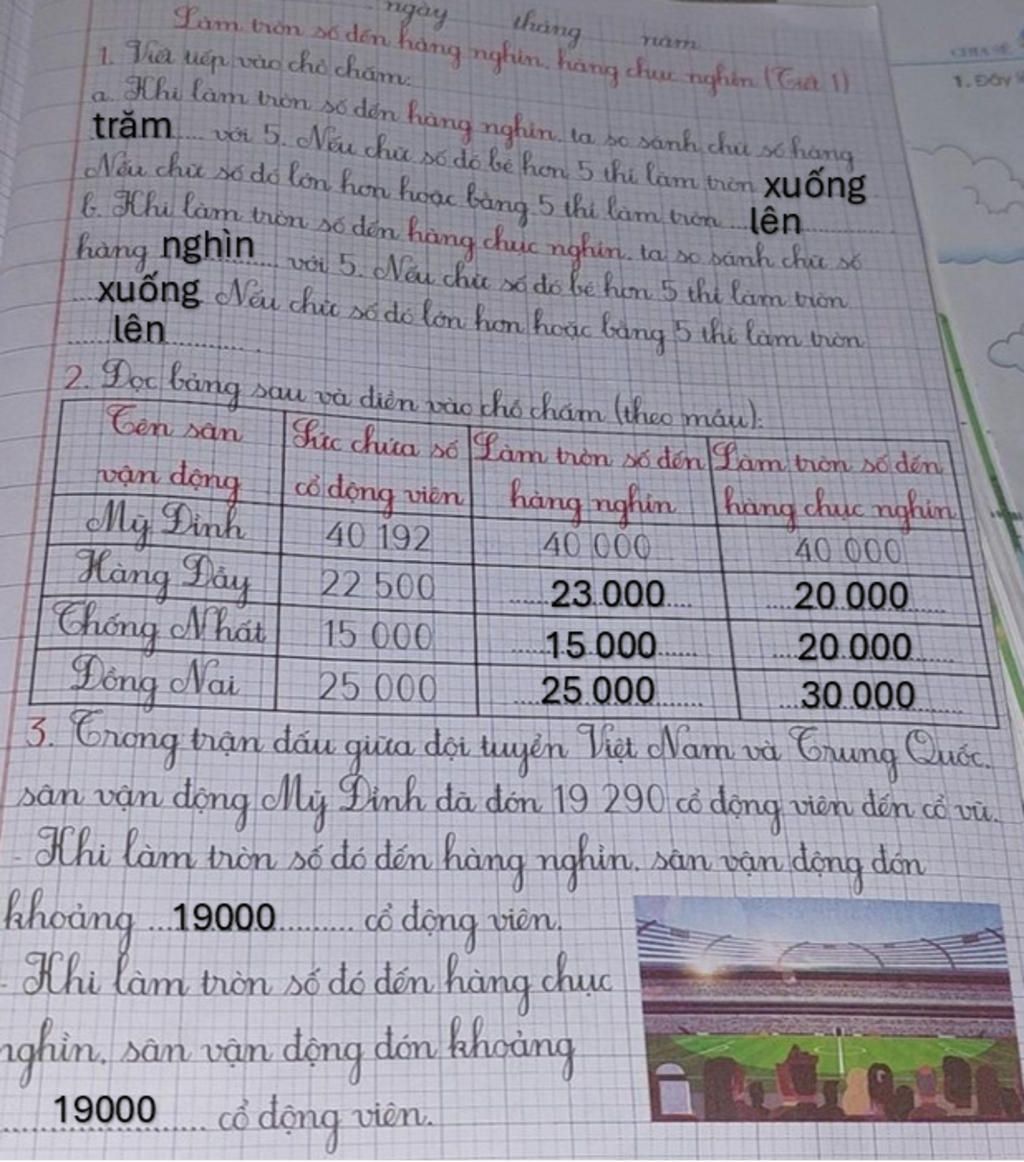 ngày tháng năm
Làm tròn số đến hàng nghìn, hàng chục nghìn (Tiết 1)
1. Viết tiếp vào chỗ chấm:
a. Khi làm tròn số đến hàng nghìn, ta so sánh chữ số hàng
trăm.... với 5. Nếu chữ số đó bé hơn 5 thì làm tròn xuống
Nếu chữ số đó lớn hơn hoặc bằng 5 thì làm tròn ...lên............
b. Khi làm tròn số đến hàng chục nghìn, ta so sánh chữ số
hàng nghìn.... với 5. Nếu chữ số đó bé hơn 5 thì làm tròn
...xuống. Nếu chữ số đó lớn hơn hoặc bằng 5 thì làm tròn
......lên..........
2. Đọc bảng sau và điền vào chỗ chấm (theo mẫu):
Tên sân vận động | Sức chứa số cổ động viên | Làm tròn số đến hàng nghìn | Làm tròn số đến hàng chục nghìn
Mỹ Đình | 40 192 | 40 000 | 40 000
Hàng Đẫy | 22 500 | .....23.000.... | ....20.000......
Thống Nhất | 15 000 | .....15.000....... | ....20.000......
Đồng Nai | 25 000 | ....25.000....... | ....30.000.......
3. Trong trận đấu giữa đội tuyển Việt Nam và Trung Quốc,
sân vận động Mỹ Đình đã đón 19 290 cổ động viên đến cổ vũ.
- Khi làm tròn số đó đến hàng nghìn, sân vận động đón
khoảng ...19000.......... cổ động viên.
- Khi làm tròn số đó đến hàng chục
nghìn, sân vận động đón khoảng
.....19000...... cổ động viên.
1.